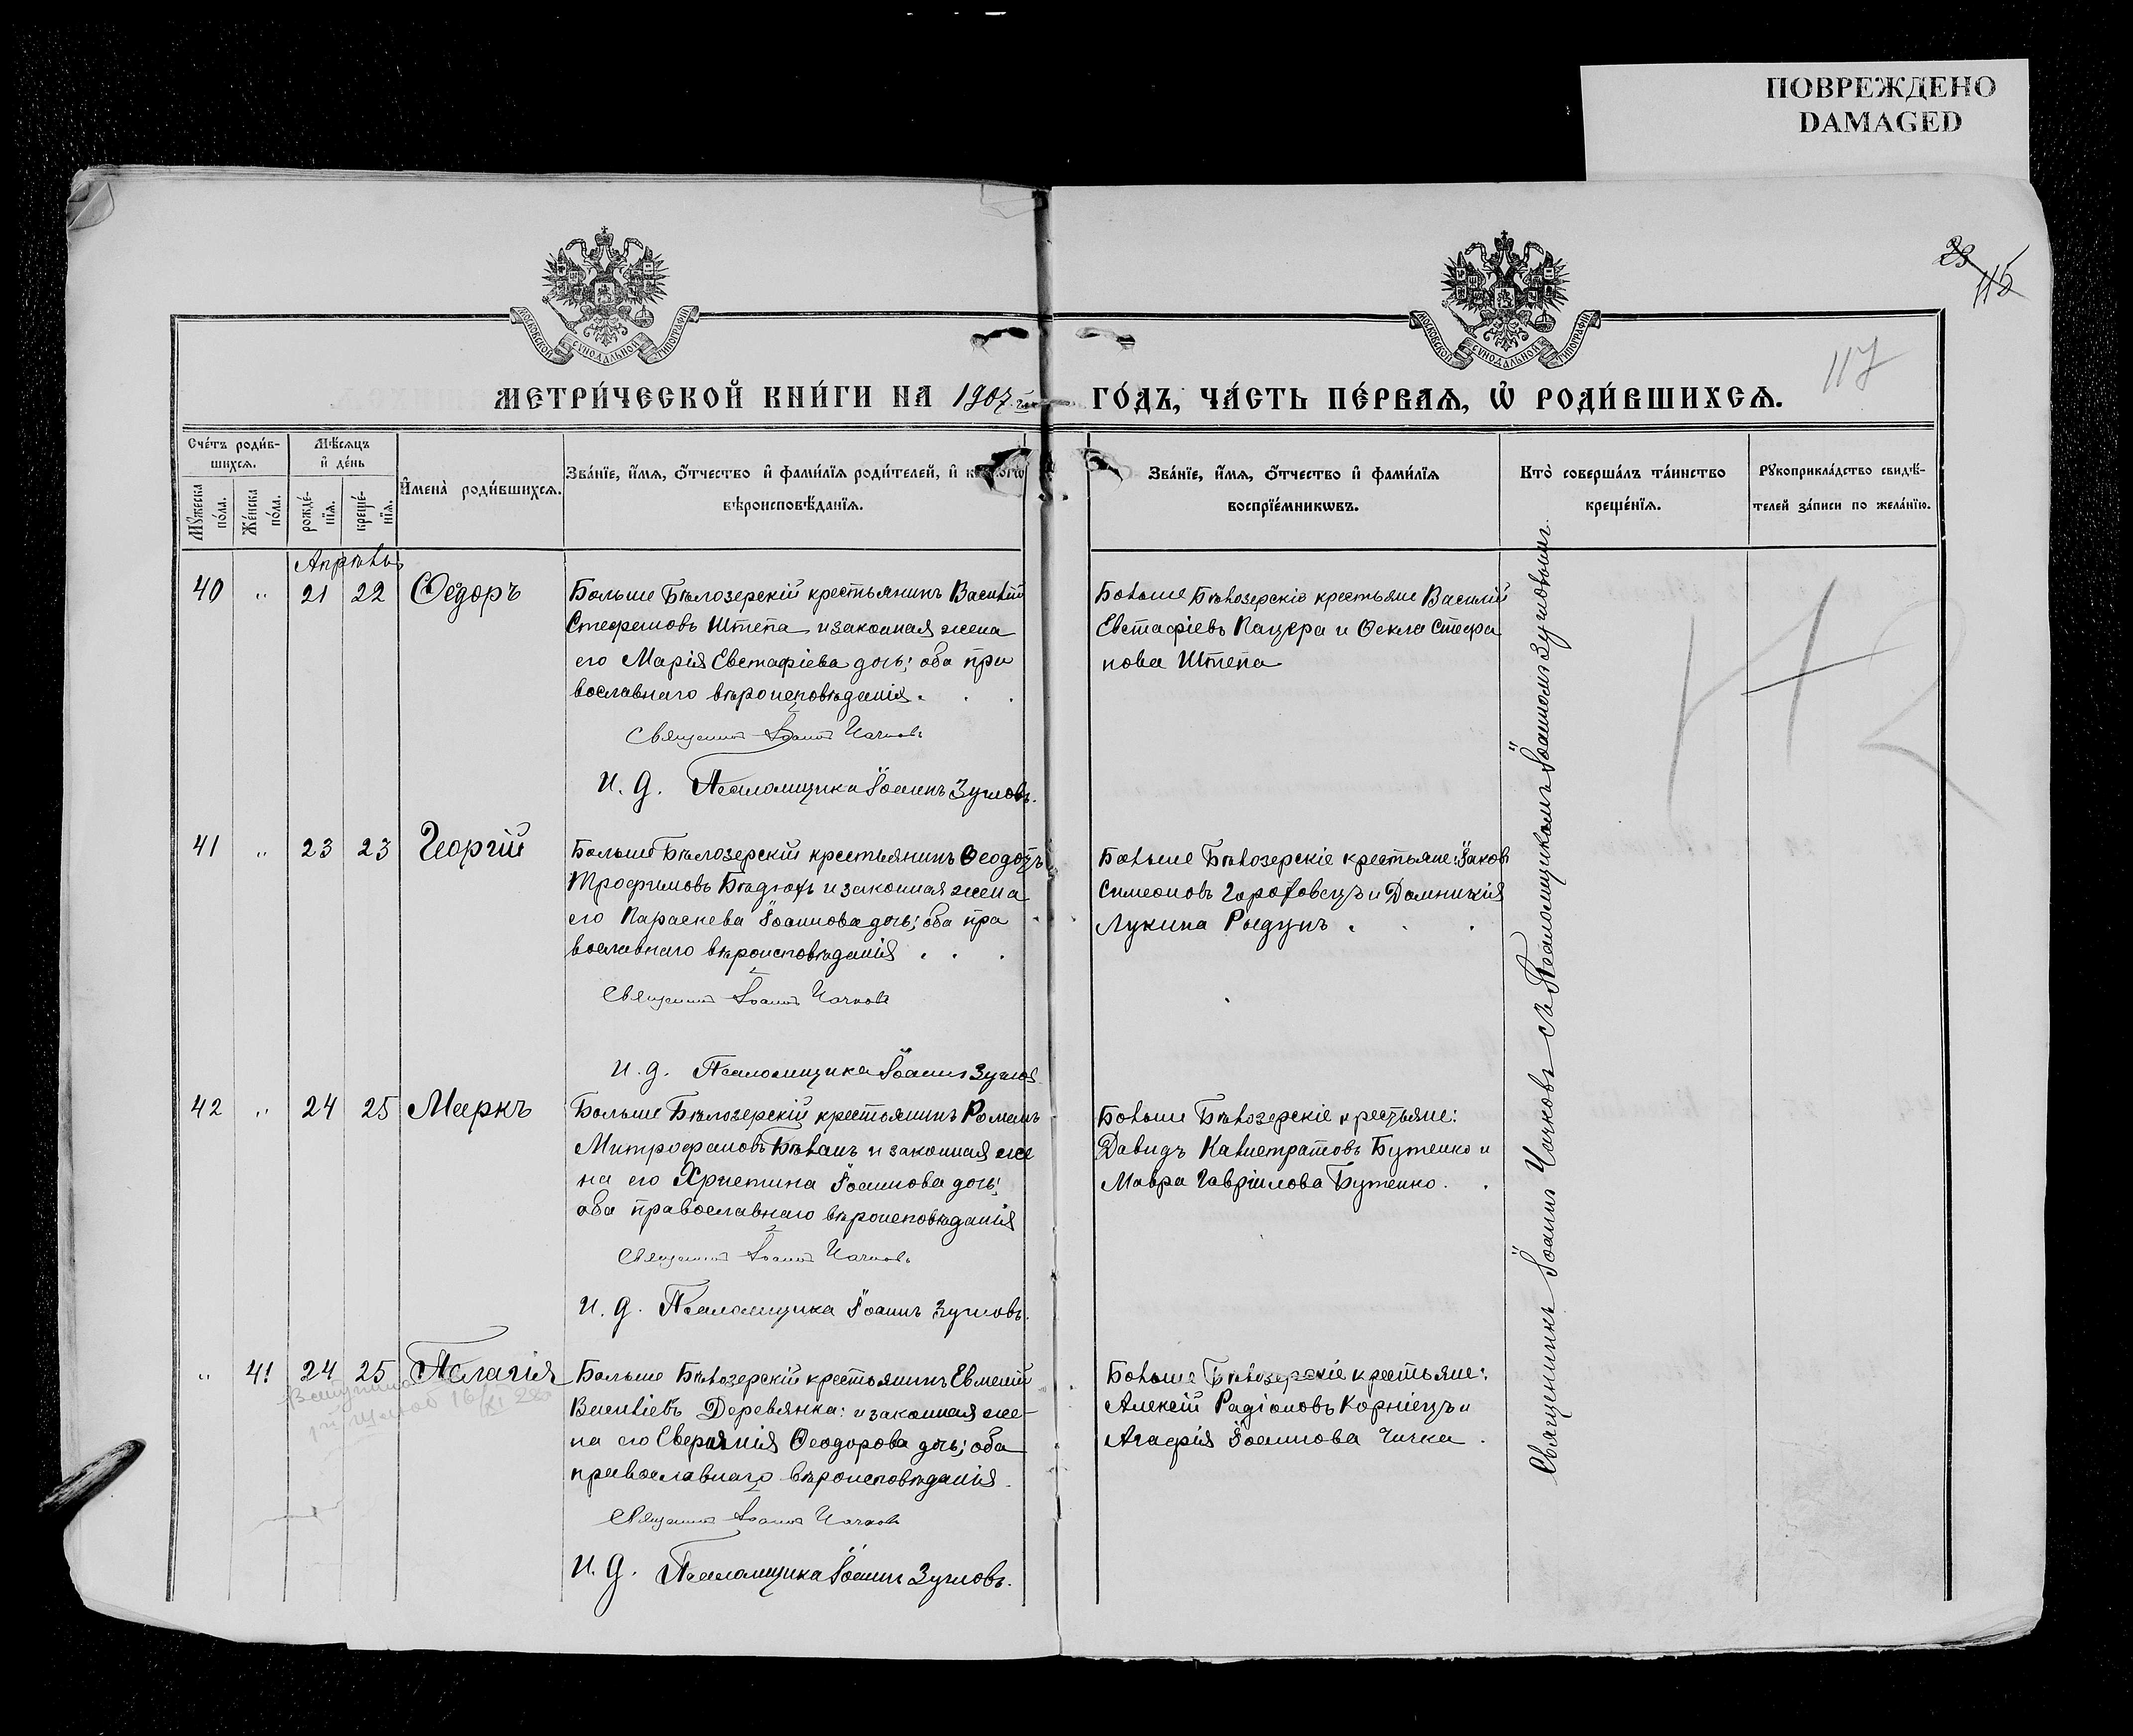 ПОВРЕЖДЕНО
DAMAGED
МОСКОВСКОЙ СѴНОДАЛЬНОЙ ТИПОГРАФІИ
МОСКОВСКОЙ СѴНОДАЛЬНОЙ ТИПОГРАФІИ
23
115
117
МЕТРИ́ЧЕСКОЙ КНИ́ГИ НА 1907
ГО́ДЪ, ЧА́СТЬ ПЕ́РВАЯ, Ѡ҆ РОДИ́ВШИХСЯ.
Сче́тъ роди́в-
шихся.
Мꙋ́жеска по́ла.
Же́нска по́ла.
Мѣ́сяцъ
и҆ де́нь
рожде́-
нїя.
креще́-
нїя.
И҆мена̀ роди́вшихся.
Зва́нїе, и҆́мя, ѻ҆́тчество и҆ фами́лїя роди́телей, и҆
вѣроисповѣ́данїя.
Зва́нїе, и҆́мя, ѻ҆́тчество и҆ фами́лїя
воспрїе́мникѡвъ.
Кто̀ соверша́лъ та́инство
креще́нїя.
Рꙋкоприкла́дство свидѣ́-
телей за́писи по жела́нїю.
Апрѣль
40 " 21 22 Ѳеодоръ
Больше Бѣлозерскій крестьянинъ Василій
Стефановъ Штепа и законная жена
его Марія Евстафіева дочь; оба пра
вославнаго вѣроисповѣданія.
Священникъ Іоаннъ Чачковъ
И. д. Псаломщика Іоаннъ Зуиловъ.
Больше Бѣлозерскіе крестьяне Василій
Евстафіевъ Пацера и Ѳекла Стефа
нова Штепа
41 " 23 23 Георгій
Больше Бѣлозерскій крестьянинъ Ѳеодотъ
Трофимовъ и законная жена
его Параскева Іоаннова дочь; оба пра
вославнаго вѣроисповѣданія . . .
Священникъ Іоаннъ Чачковъ
И. д. Псаломщика Іоаннъ Зуиловъ
Больше Бѣлозерскіе крестьяне: Іаковъ
Симеоновъ Гороховецъ и Домникія
Лукина Рыдунъ . . .
42 " 24 25 Маркъ
Больше Бѣлозерскій крестьянинъ Романъ
Митрофановъ Бѣланъ и законная же
на его Христина Іоаннова дочь;
оба православнаго вѣроисповѣданія
Священникъ Іоаннъ Чачковъ
И. д. Псаломщика Іоаннъ Зуиловъ.
Больше Бѣлозерскіе крестьяне:
Давидъ Калистратовъ Бутенко и
Мавра Гавріилова Бутенко. .
" 41 24 25 Пелагія
Больше Бѣлозерскій крестьянинъ Евменій
Василіевъ Деревянка: и законная же-
на его Евфимія Ѳеодорова дочь; оба
православнаго вѣроисповѣданія.
Священникъ Іоаннъ Чачковъ
И. д. Псаломщика Іоаннъ Зуиловъ.
Больше Бѣлозерскіе крестьяне:
Алексій Радіоновъ Корніецъ и
Агафія Іоаннова Чичка .
Священникъ Іоаннъ Чачковъ съ Псаломщикомъ Іоанномъ Зуиловымъ.